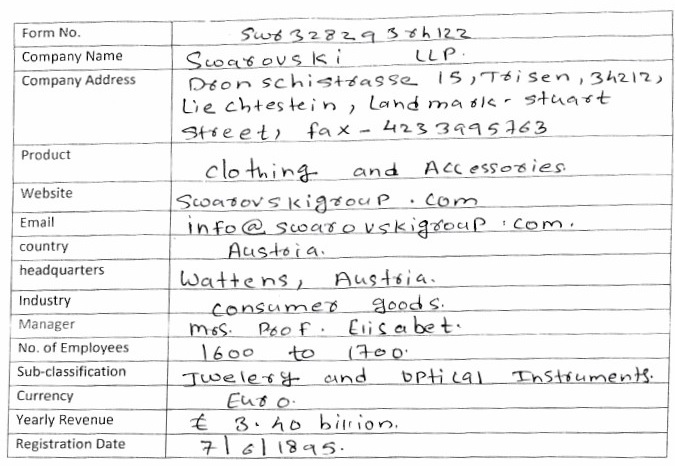 Form No. Swr328293rh122
Company Name Swarovski LLP.
Company Address Dron schistrasse 15, Trisen, 34212,
Lie chtestein, Land mark- stuart
Street, fax - 423 3995763
Product Clothing and Accessories.
Website Swarovskigroup.com
Email info@swarovskigroup.com.
country Austria.
headquarters Wattens, Austria.
Industry consumer goods.
Manager mrs. Prof. Elisabet.
No. of Employees 1600 to 1700.
Sub-classification Jwelery and optical Instruments.
Currency Euro.
Yearly Revenue £ 3.40 billion.
Registration Date 7/6/1895.